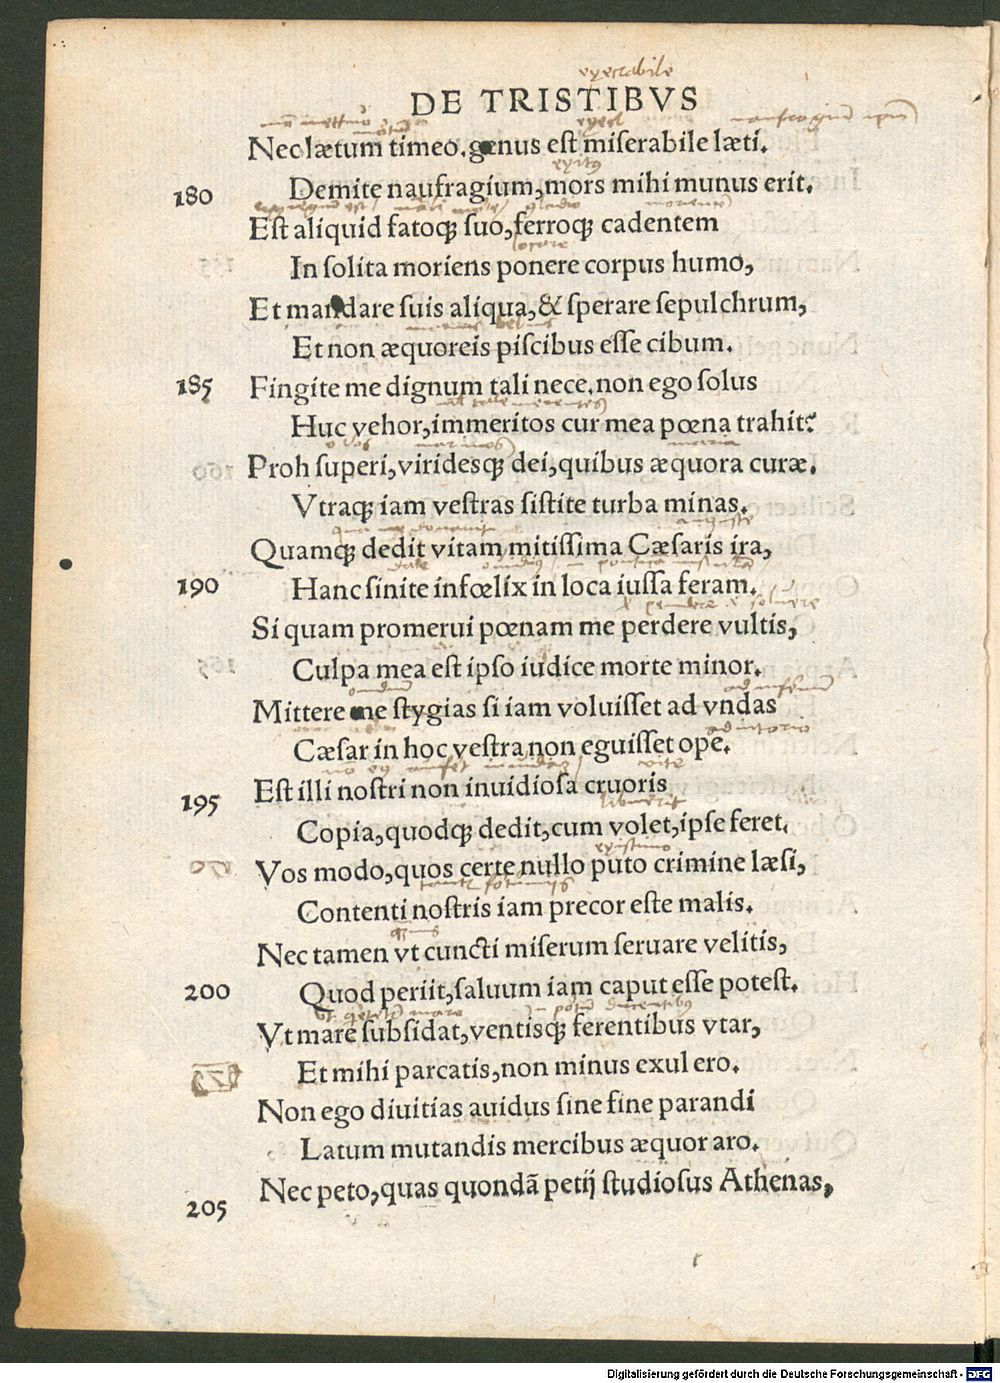 execrabile
DE TRISTIBVS
Nec lætum timeo. genus est miserabile læti.
exitus
180 Demite naufragium, mors mihi munus erit.
gladio
Est aliquid fatoqꝫ suo, ferroqꝫ cadentem
locare
In solita moriens ponere corpus humo,
Et mandare suis aliqua, & sperare sepulchrum,
Et non æquoreis piscibus esse cibum.
185 Fingite me dignum tali nece, non ego solus
Huc vehor, immeritos cur mea pœna trahit?
o vos maria
Proh superi, viridesqꝫ dei, quibus æquora curæ.
Vtraqꝫ iam vestras sistite turba minas.
auguste
Quamqꝫ dedit vitam mitissima Cæsaris ira,
date
190 Hanc sinite infœlix in loca iussa feram.
Si quam promerui pœnam me perdere vultis,
Culpa mea est ipso iudice morte minor.
Mittere me stygias si iam voluisset ad vndas
adiutorio
Cæsar in hoc vestra non eguisset ope.
vite
195 Est illi nostri non inuidiosa cruoris
Copia, quodqꝫ dedit, cum volet, ipse feret.
existimo
Vos modo, quos certe nullo puto crimine læsi,
Contenti nostris iam precor este malis.
Nec tamen vt cuncti miserum seruare velitis,
200 Quod periit, saluum iam caput esse potest.
mare
Vt mare subsidat, ventisqꝫ ferentibus vtar,
Et mihi parcatis, non minus exul ero.
Non ego diuitias auidus sine fine parandi
Latum mutandis mercibus æquor aro.
205 Nec peto, quas quondã petij studiosus Athenas,
Digitalisierung gefördert durch die Deutsche Forschungsgemeinschaft - DFG